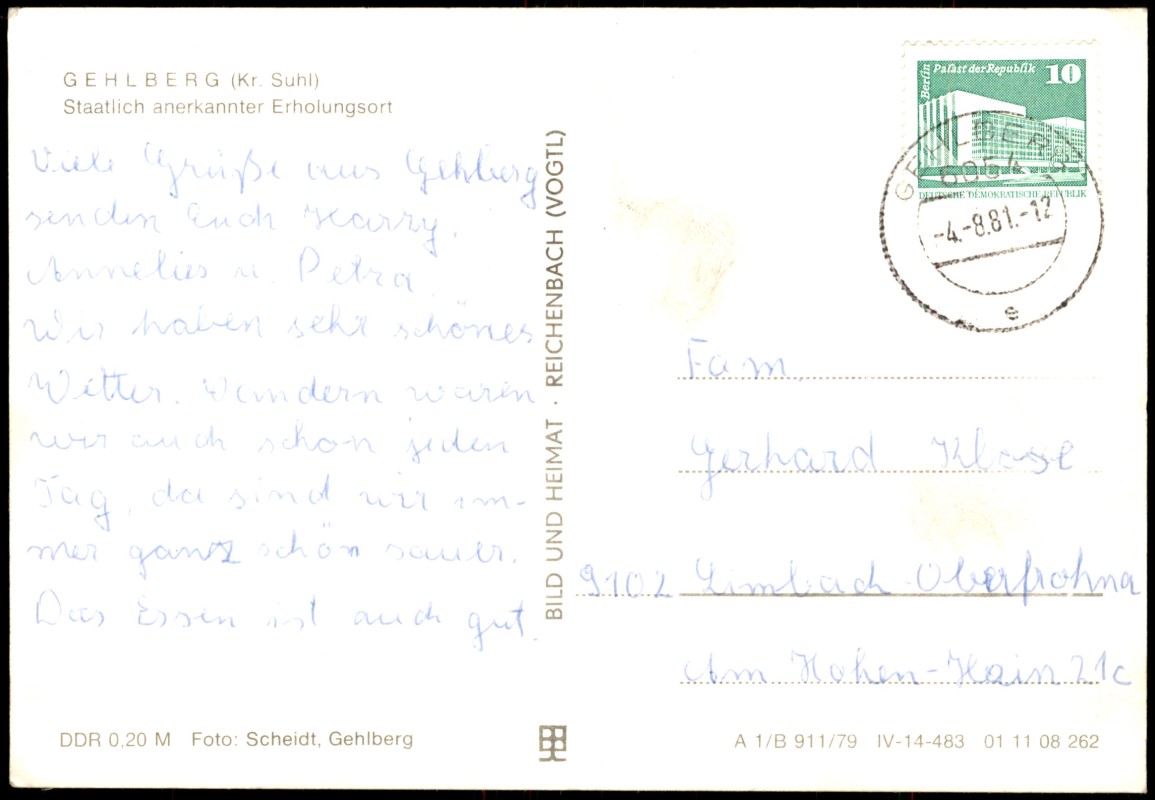 GEHLBERG (Kr. Suhl)
Staatlich anerkannter Erholungsort
Viele Grüße aus Gehlberg
senden Euch Harry,
Annelies u. Petra.
Wir haben sehr schönes
Wetter. Wandern waren
wir auch schon jeden
Tag, da sind wir im-
mer ganz schön sauer.
Das Essen ist auch gut.
DDR 0,20 M Foto: Scheidt, Gehlberg
BILD UND HEIMAT · REICHENBACH (VOGTL)
Berlin Palast der Republik 10
DEUTSCHE DEMOKRATISCHE REPUBLIK
GEHLBERG
6054
-4.-8.81.-12
e
Fam.
Gerhard Klose
9102 Limbach-Oberfrohna
Am Hohen-Hain 21c
A 1/B 911/79 IV-14-483 01 11 08 262